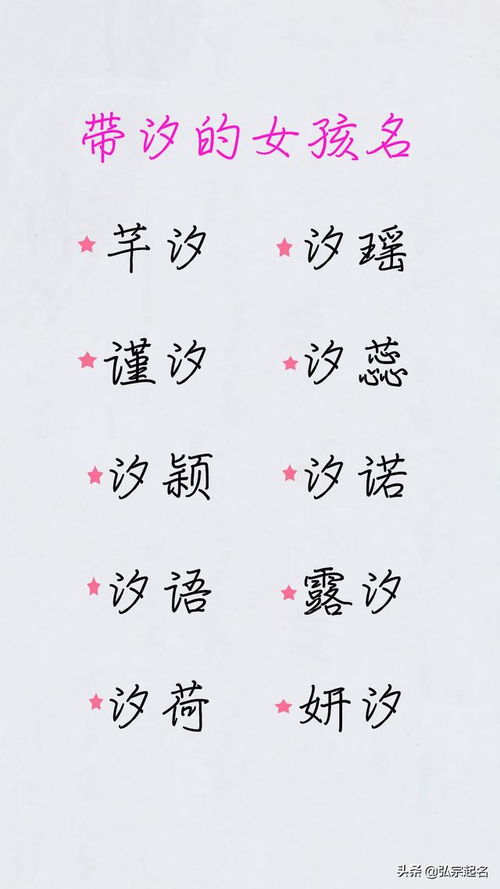 带汐的女孩名
芊汐 汐瑶
谨汐 汐蕊
汐颖 汐诺
汐语 露汐
汐荷 妍汐
头条 @弘宗起名